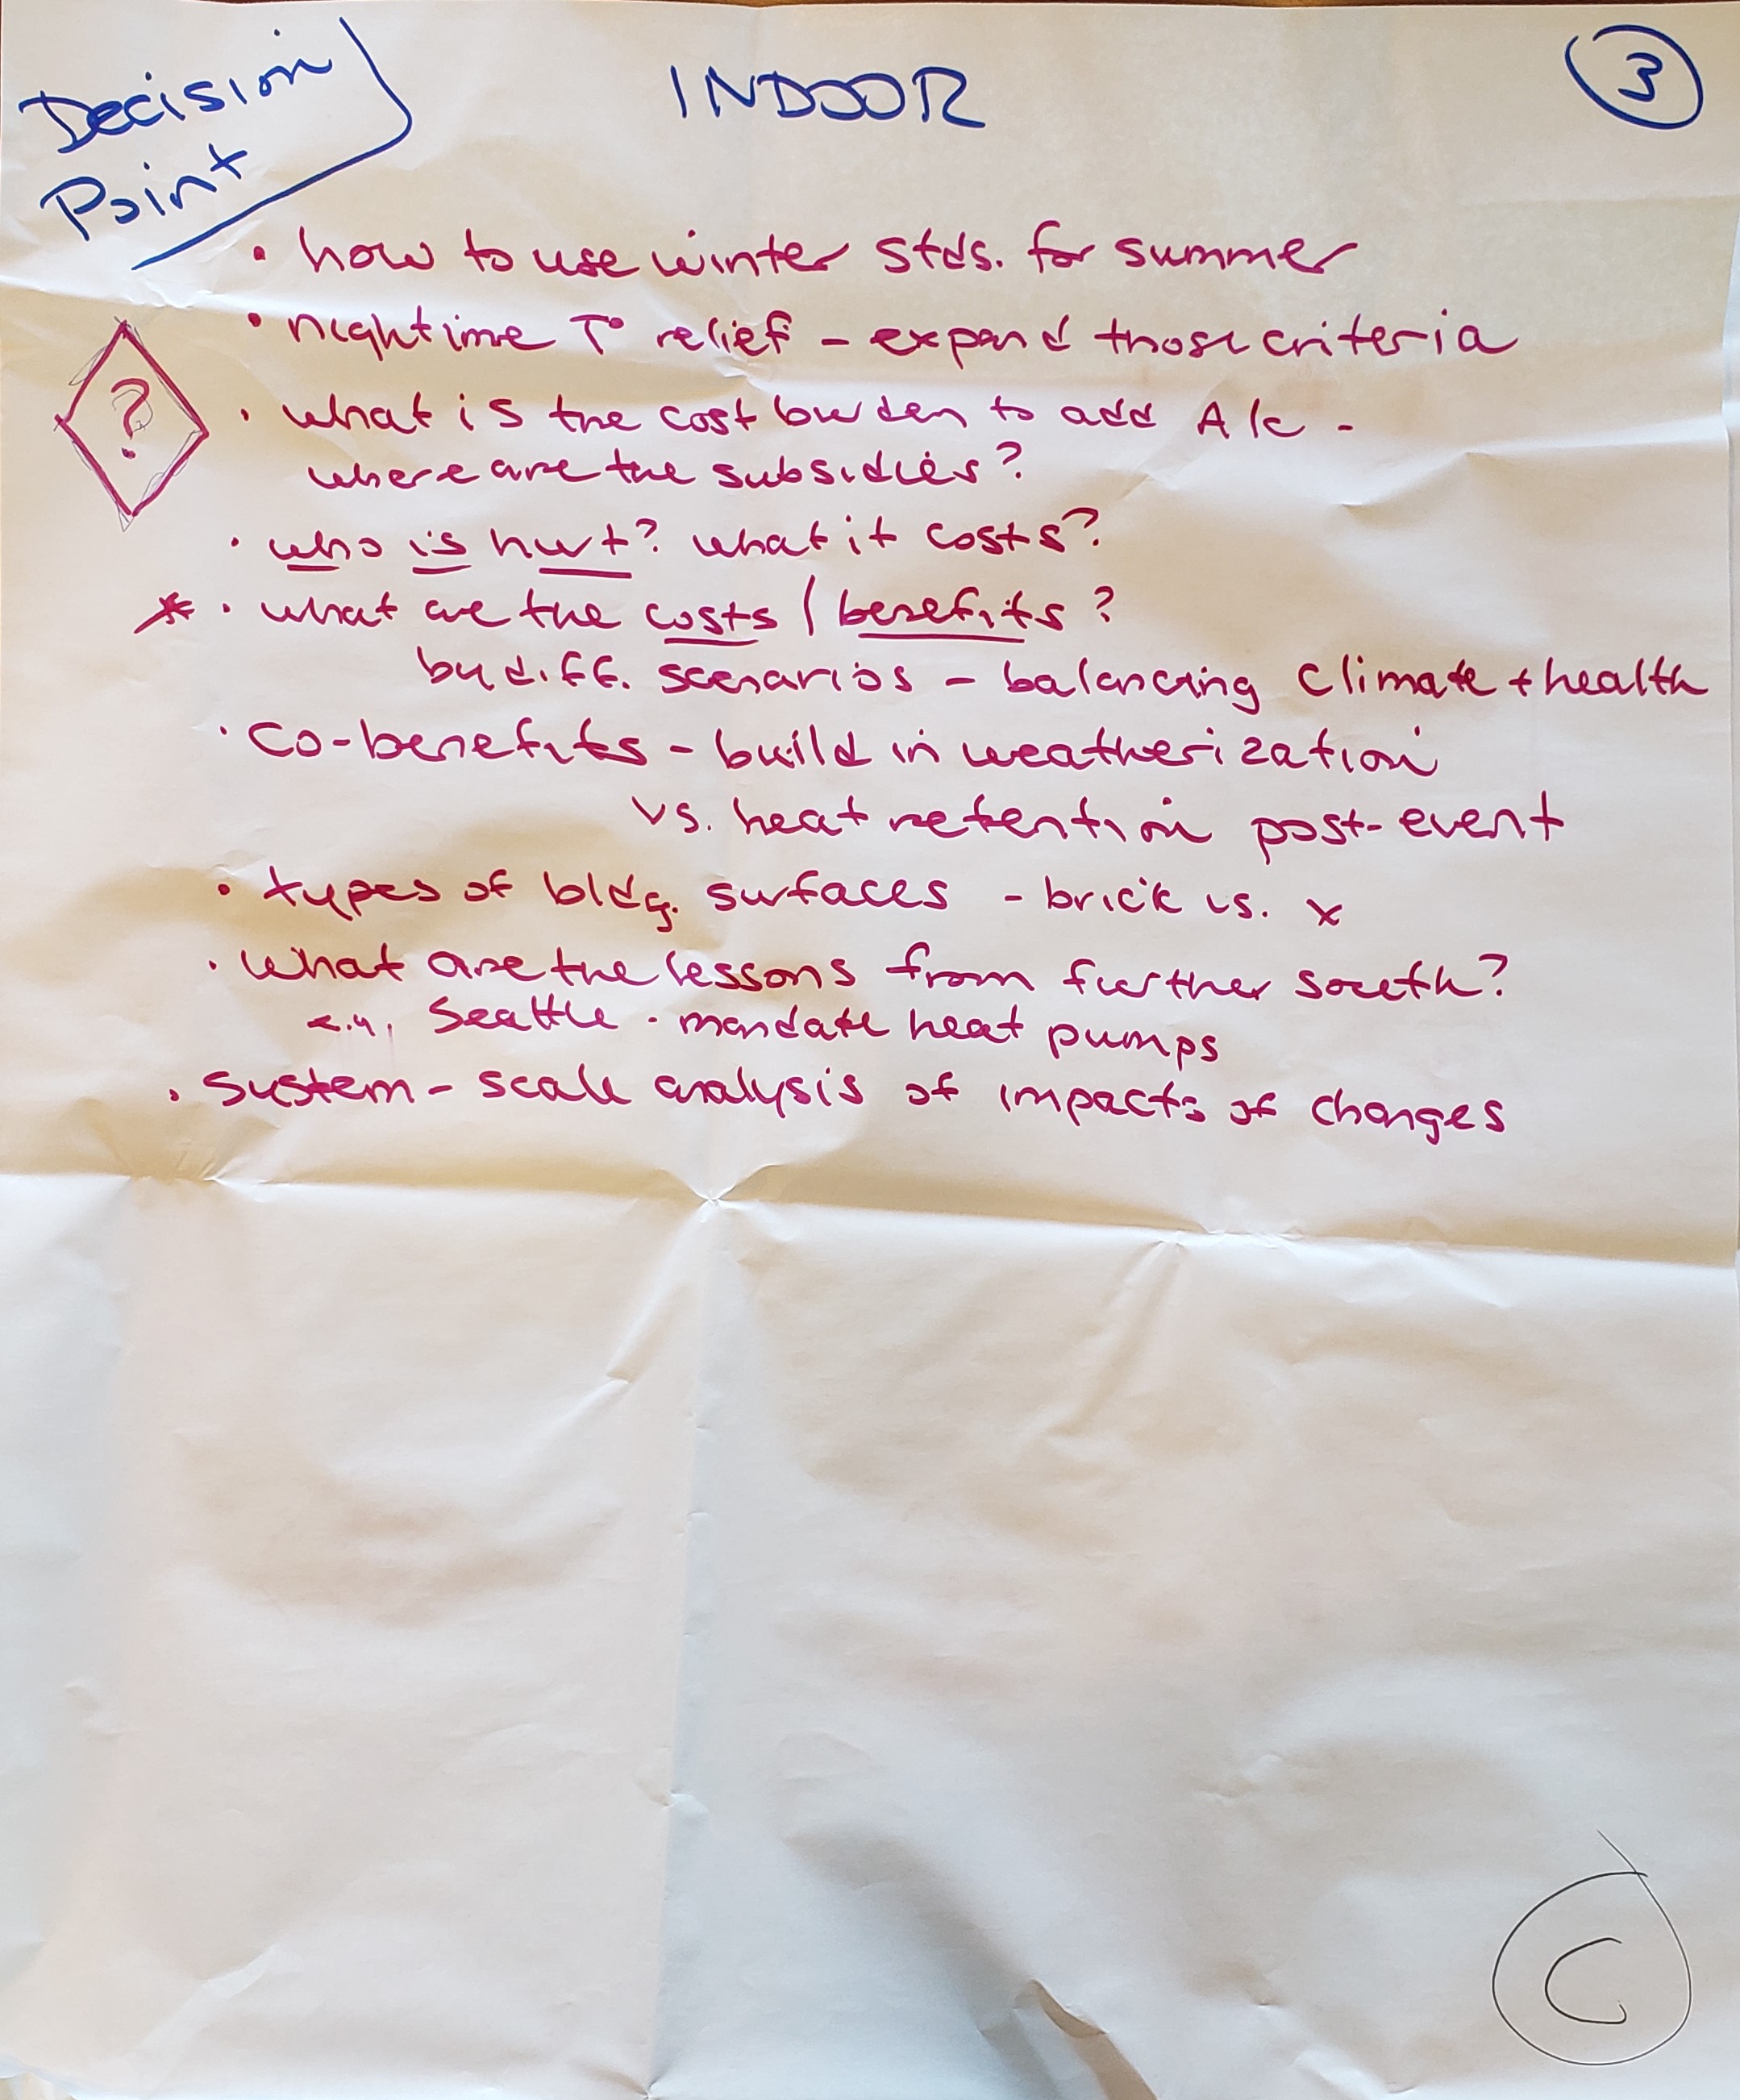 Decision
Point
INDOOR
3
• how to use winter stds. for summer
• nightime T° relief - expand those criteria
?
• what is the cost burden to add A/c -
where are the subsidies?
• who is hurt? what it costs?
* • what are the costs / benefits?
by diff. scenarios - balancing climate + health
• co-benefits - build in weatherization
vs. heat retention post-event
• types of bldg. surfaces - brick vs. x
• what are the lessons from further south?
e.g. Seattle - mandate heat pumps
• system-scale analysis of impacts of changes
C